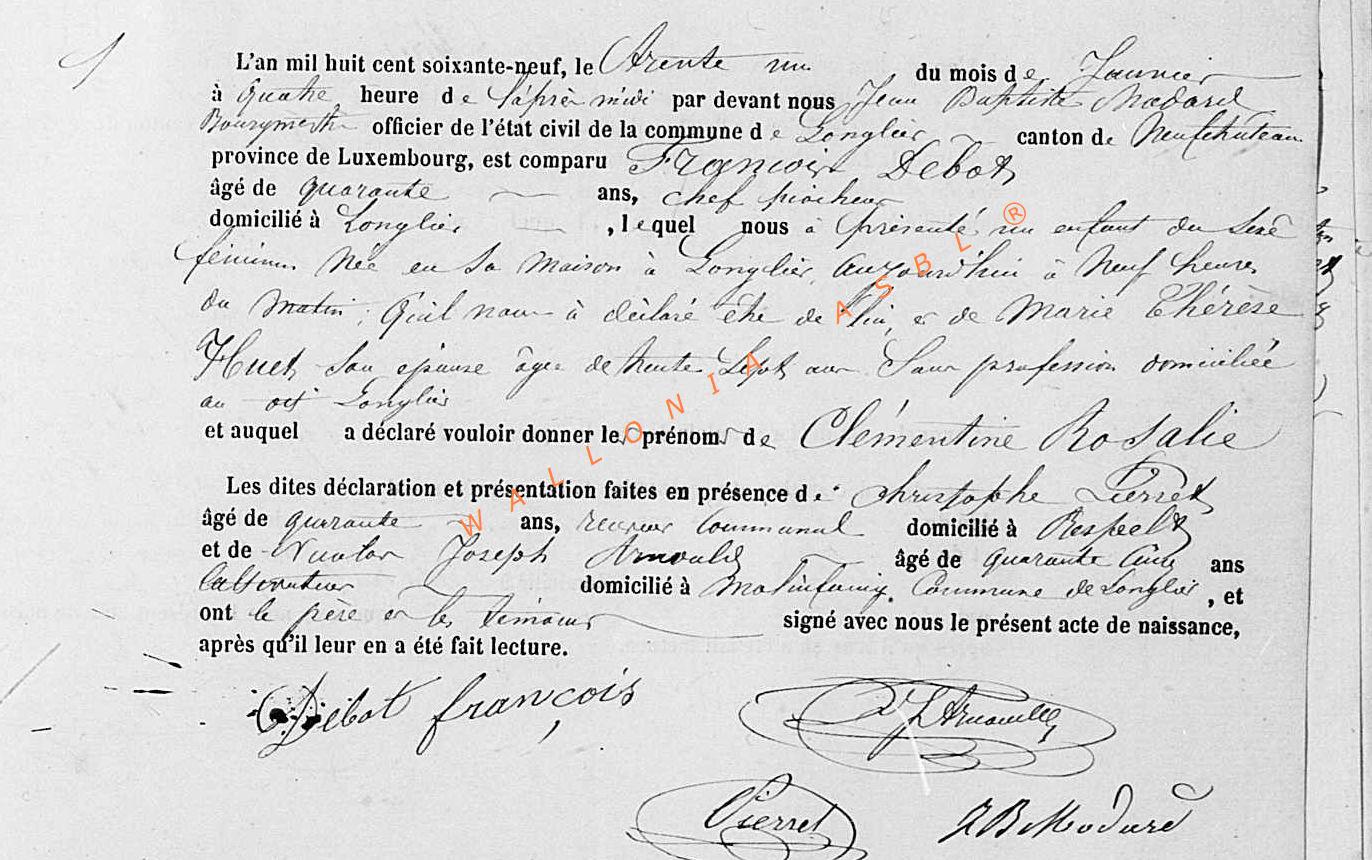 L'an mil huit cent soixante-neuf, le trente un du mois de Janvier
à quatre heure de l'après midi par devant nous Jean Baptiste Madard
Bourgmestre officier de l'état civil de la commune de Longlier canton de Neufchateau
province de Luxembourg, est comparu François Debot
âgé de quarante ans, chef piocheur
domicilié à Longlier, lequel nous à présenté un enfant du sexe
féminin née en sa maison à Longlier, aujourd'hui à neuf heures
du matin, qu'il nous à déclaré être de lui, et de Marie Thérèse
Huet son épouse âgée de trente sept ans sans profession domiciliée
au dit Longlier
et auquel a déclaré vouloir donner les prénoms de Clémentine Rosalie
Les dites déclaration et présentation faites en présence de Christophe Pierret
âgé de quarante ans, receveur communal domicilié à Respelt
et de Joseph Arnould âgé de quarante cinq ans
cultivateur domicilié à Molinfaing, Commune de Longlier, et
ont le père et les témoins signé avec nous le présent acte de naissance,
après qu'il leur en a été fait lecture.
Debot françois
Arnould
Pierret
JB Madard
WALLONIA ASBL ®